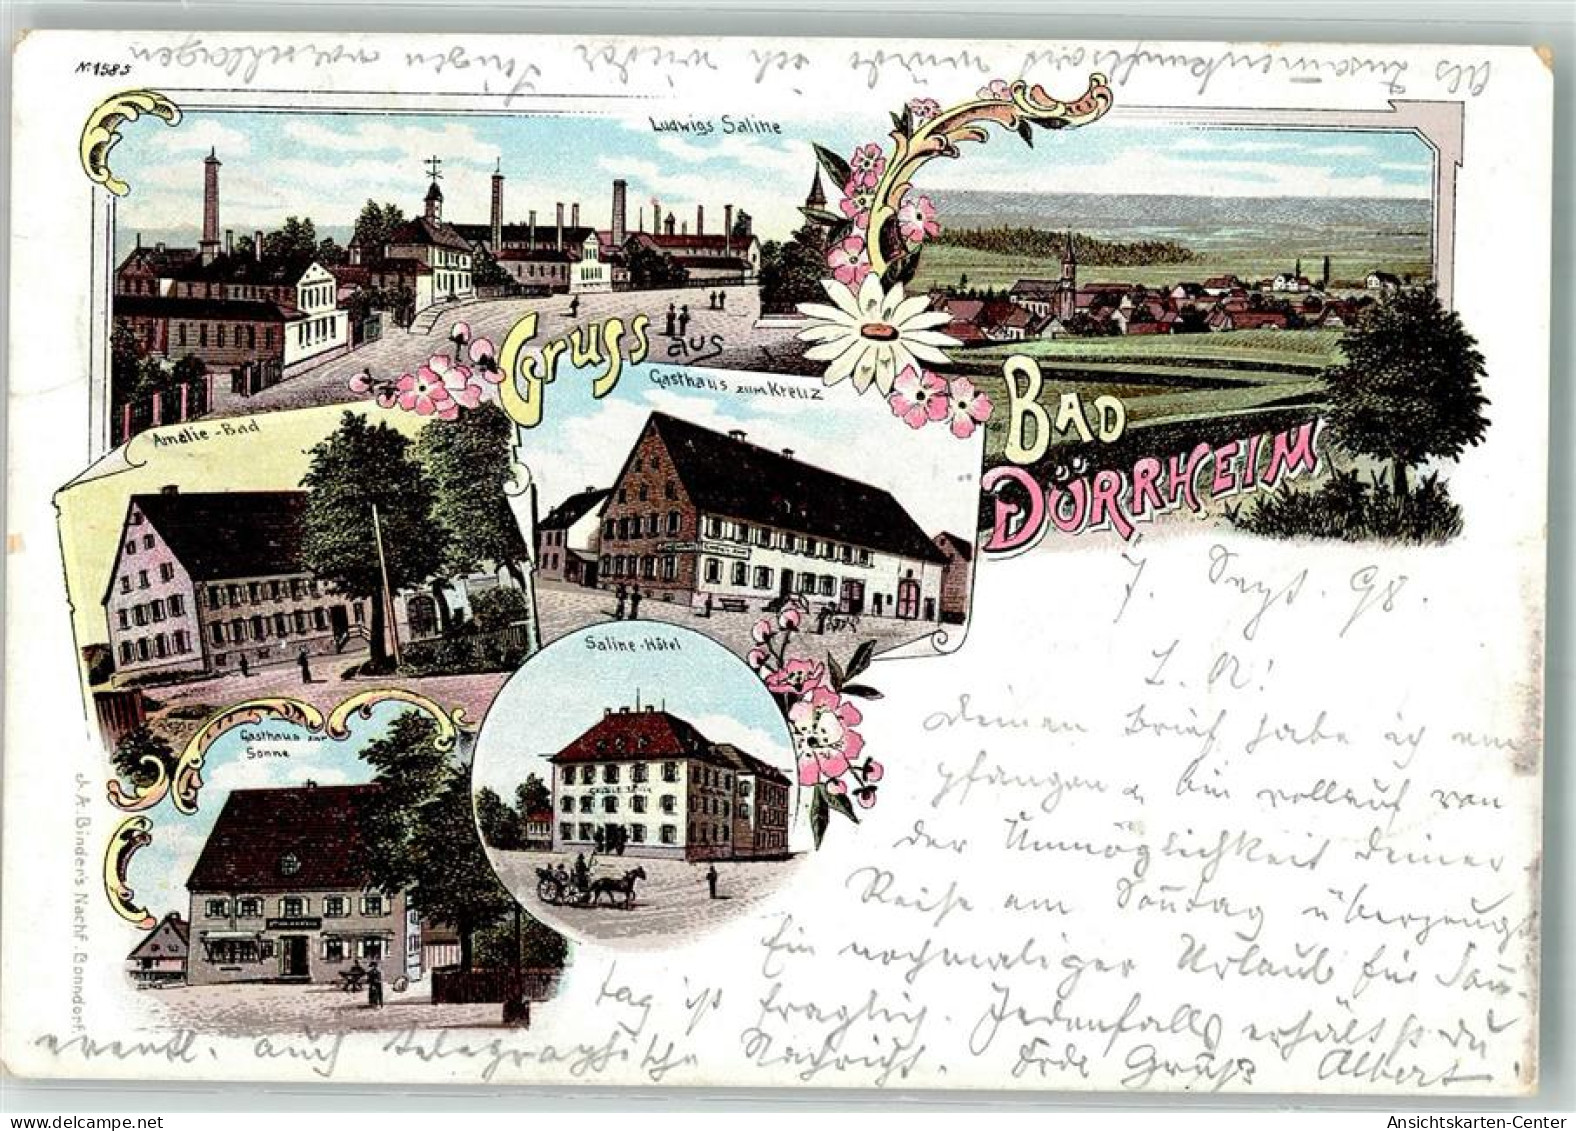 Als Zusammenkunftsort würde ich wieder Singen vorschlagen
N. 1585
Ludwigs Saline
Gruss aus
Bad
Dürrheim
Gasthaus zum Kreuz
Amalie-Bad
Saline-Hôtel
Gasthaus zur
Sonne
J. A. Binder's Nachf. Bonndorf.
7. Sept. 98.
L. A!
Deinen Brief habe ich em
pfangen u bin vollauf von
der Unmöglichkeit deiner
Reise am Sonntag überzeugt
Ein nochmaliger Urlaub für Son-
tag ist fraglich. Jedenfalls erhältst du
eventl. auch telegraphische Nachricht. Gruß Albert
oldthing.de
Ansichtskarten-Center